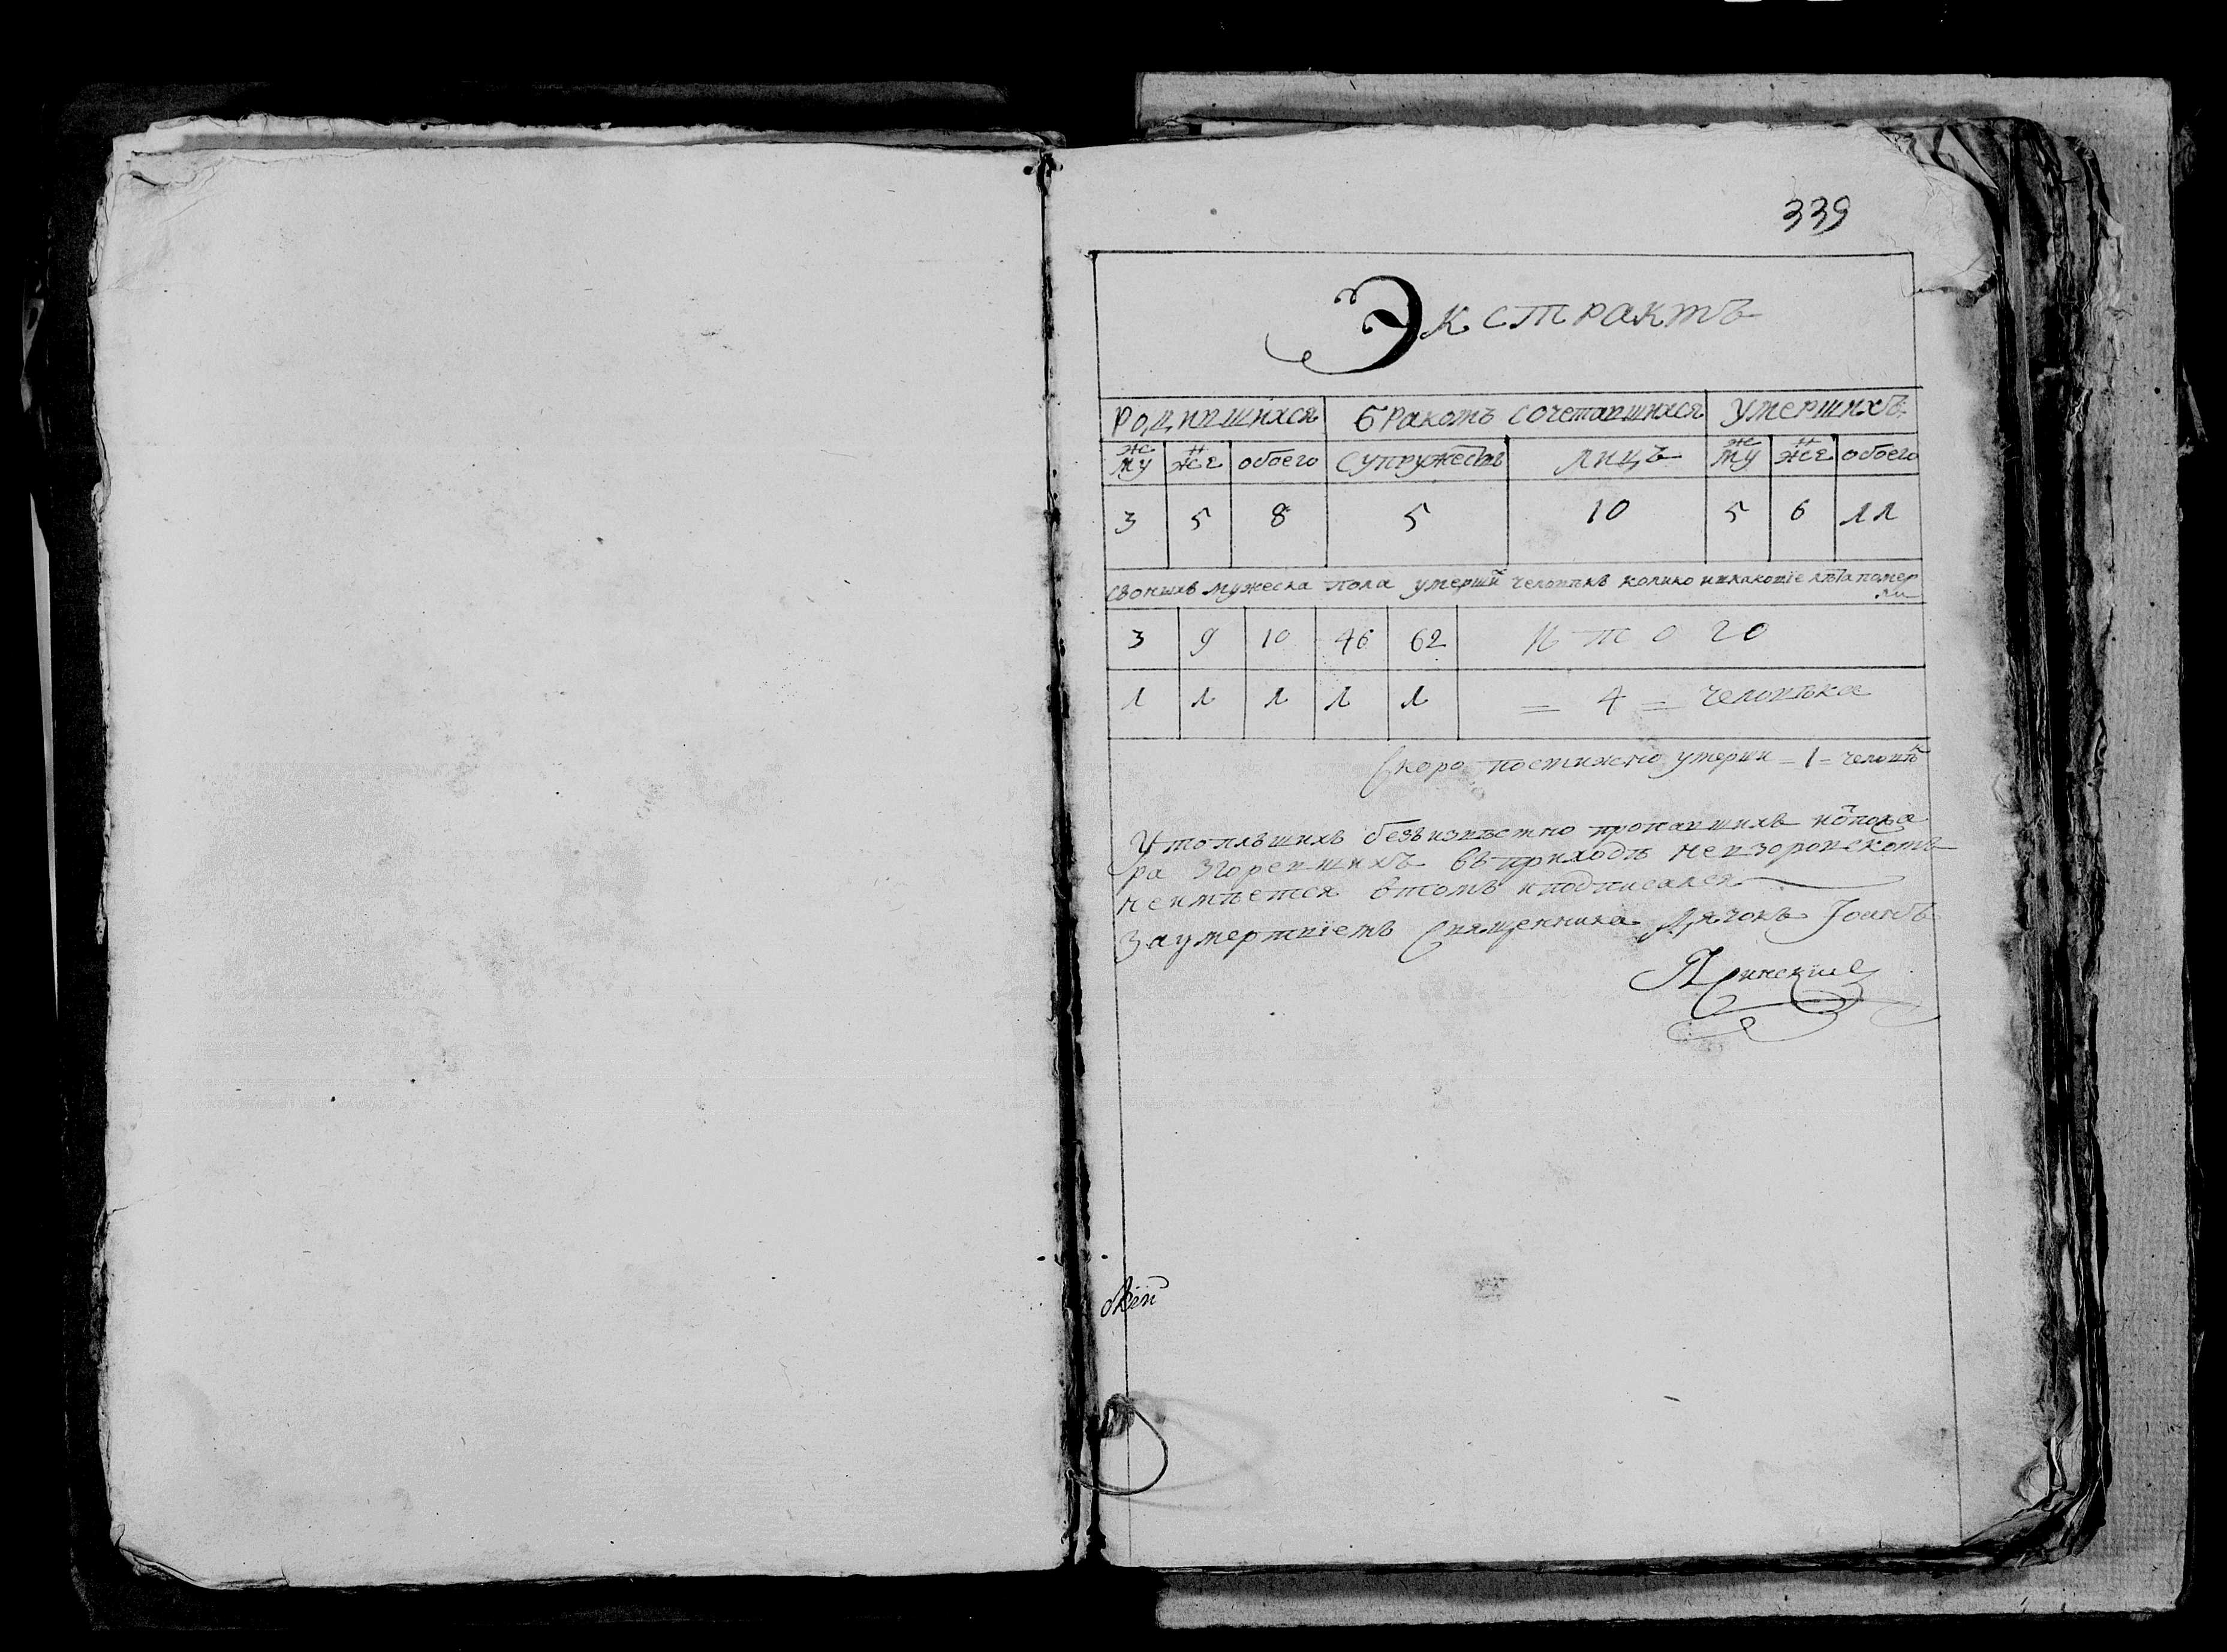 339
Экстрактъ
Родившихся Бракомъ сочетавшихся умершихъ
муж жен обоего супружествъ лицъ муж жен обоего
3 5 8 5 10 5 6 11
мужеска пола умерши человѣкъ колико и въ какоще лѣта помер
ли
3 9 10 46 62 итого
1 1 1 1 1 = 4 = человѣка
Скоро постижно умерши = 1 = человѣ
Утопльшихъ безъ извѣстно пропавшихъ
ра згоревшихъ въ приходѣ Невзоровскомъ
неимѣется втомъ и подписался
За умертвіемъ Священника Дячокъ Іоанъ